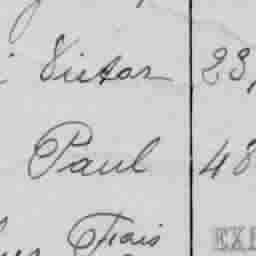 Victor 23,
Paul 48
Frais EXE